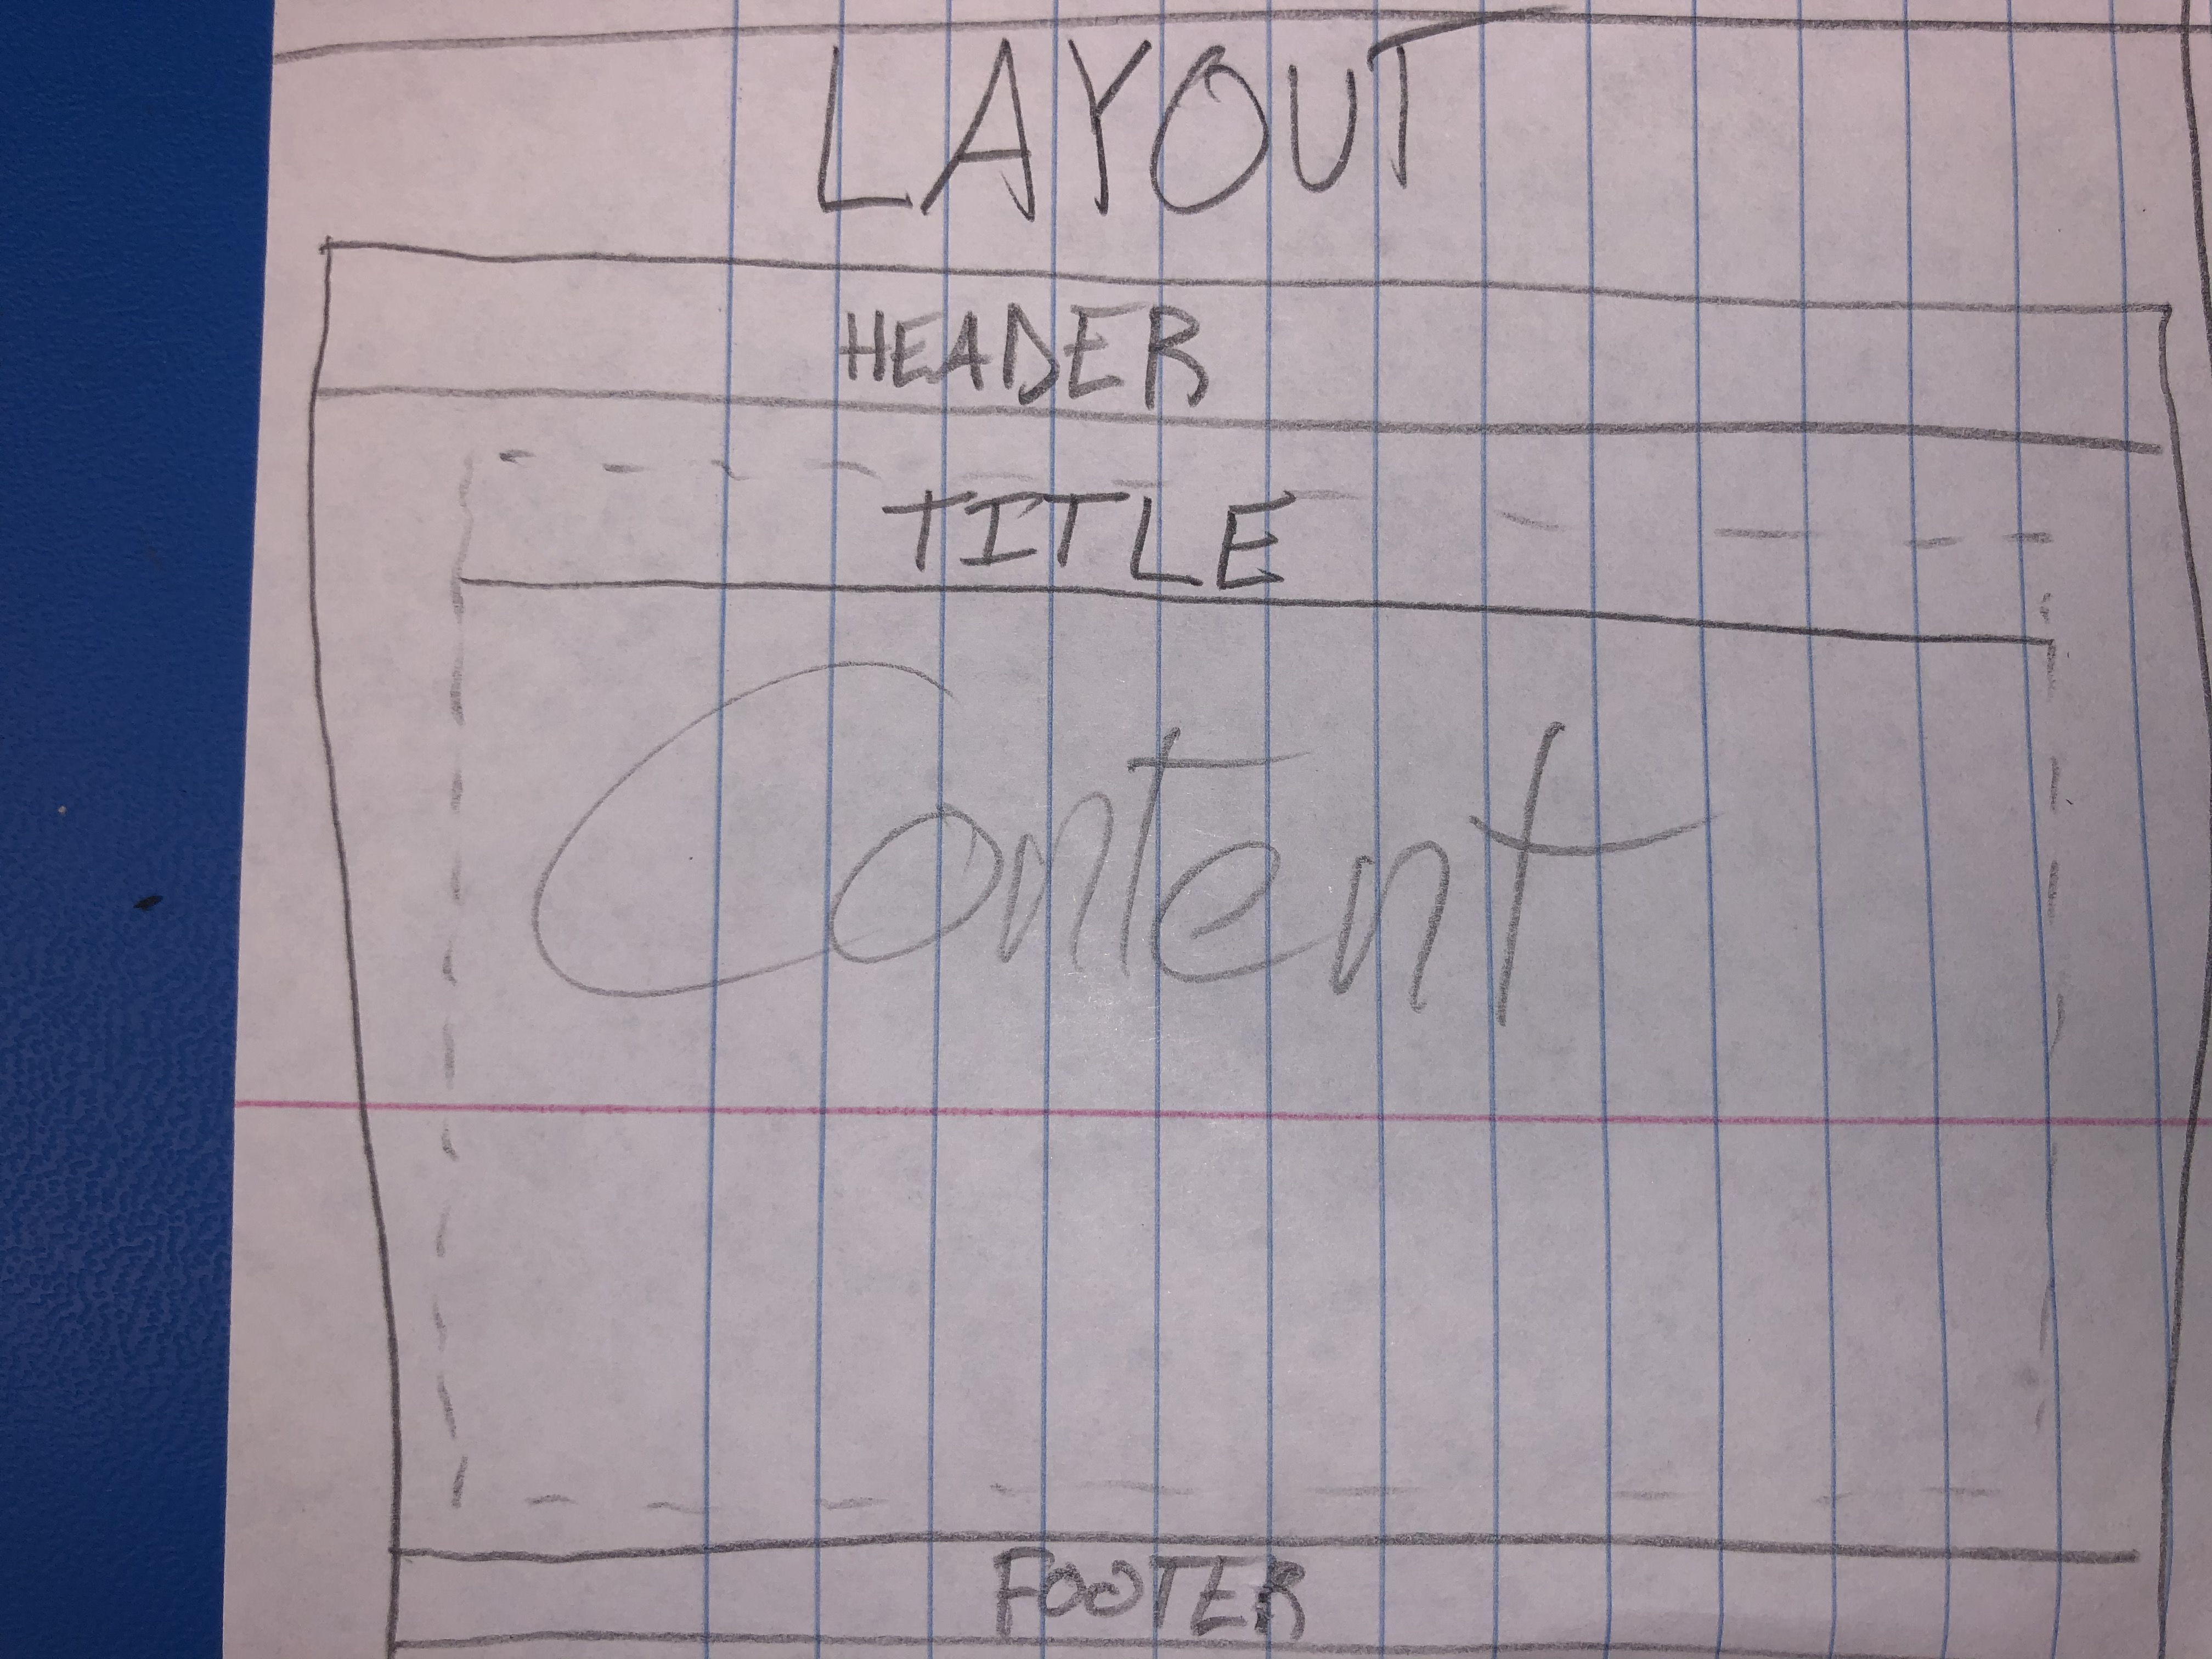 LAYOUT
HEADER
TITLE
Content
FOOTER